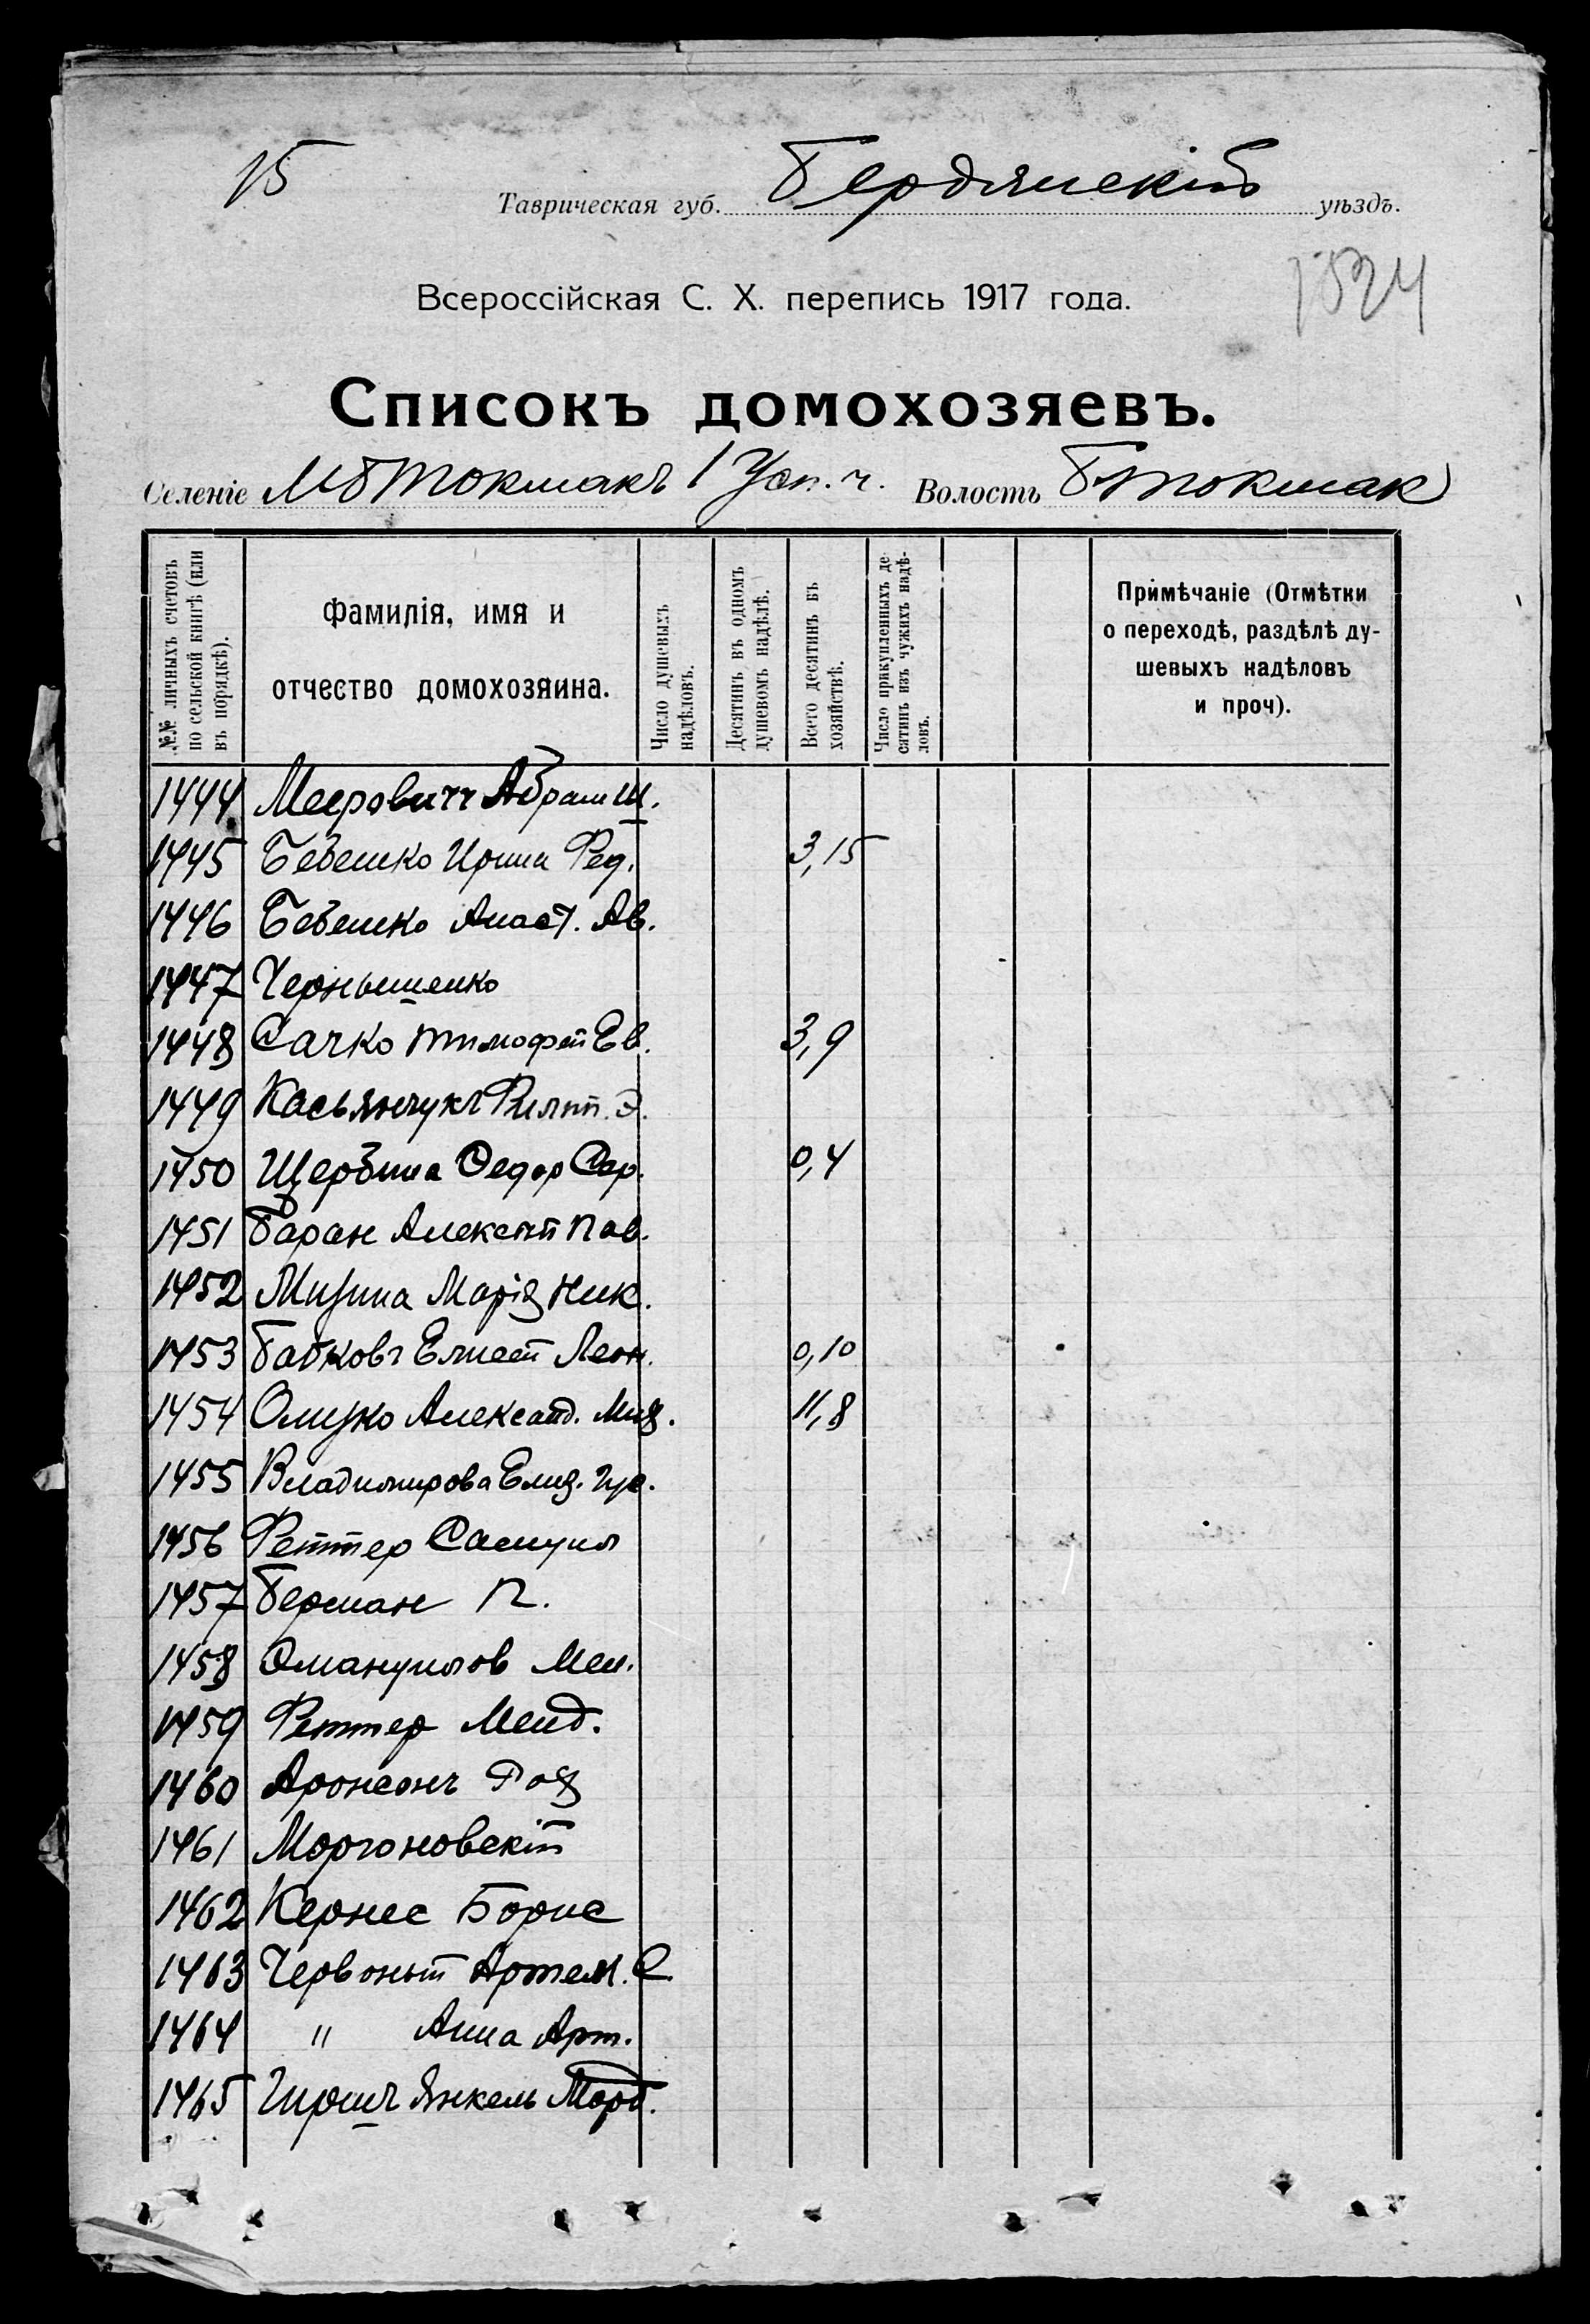 15
Таврическая губ. Бердянскій уѣздъ.
Всероссійская С. Х. перепись 1917 года.
1524
Списокъ домохозяевъ.
Селеніе М Б Токмакъ 1 Усп. ч. Волость Б Токмак
№№ личныхъ счетовъ по сельской книгѣ (или въ порядкѣ).
Фамилія, имя и отчество домохозяина.
Число душевыхъ надѣловъ.
Десятинъ въ одномъ душевомъ надѣлѣ.
Всего десятинъ въ хозяйствѣ.
Число прикупленныхъ десятинъ изъ чужихъ надѣловъ.
Примѣчаніе (Отмѣтки
о переходѣ, раздѣлѣ ду-
шевыхъ надѣловъ
и проч).
1444 Меерович Абрам Ш.
1445 Бебешко Ирина Фед. 3,15
1446 Бебешко Анаст. Ав.
1447 Чернышенко
1448 Сачко Тимофей Ев. 3,9
1449 Касьянчукъ Филип. Э.
1450 Щербина Федор Сар. 0,4
1451 Баран Алексей Пав.
1452 Мизина Марія Ник.
1453 Бабковъ Елисей Леон. 0,10
1454 Олизко Александ. Мих. 11,8
1455 Владимирова Елиз.
1456 Реттер Самуил
1457 Берман П.
1458 Эмануилов Мен.
1459 Реттер Менд.
1460 Аронсонъ
1461 Моргоновскій
1462 Кернес Борис
1463 Червоный Артем. С.
1464 " Анна Арт.
1465 Гиршъ Янкель Морд.